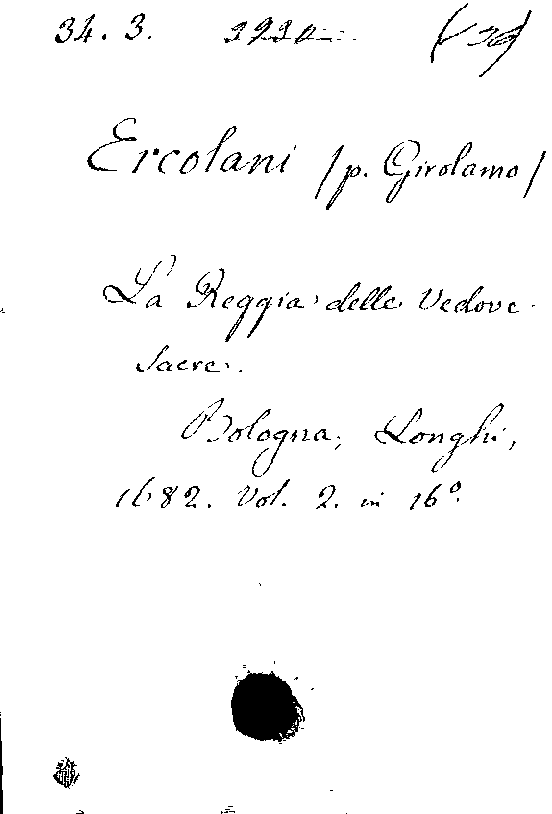 34. 3.
Ercolani / p. Girolamo /
La Reggia delle Vedove
Sacre.
Bologna, Longhi,
1682. Vol. 2. in 16º.